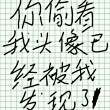 你偷看
我头像已
经被我
发现了